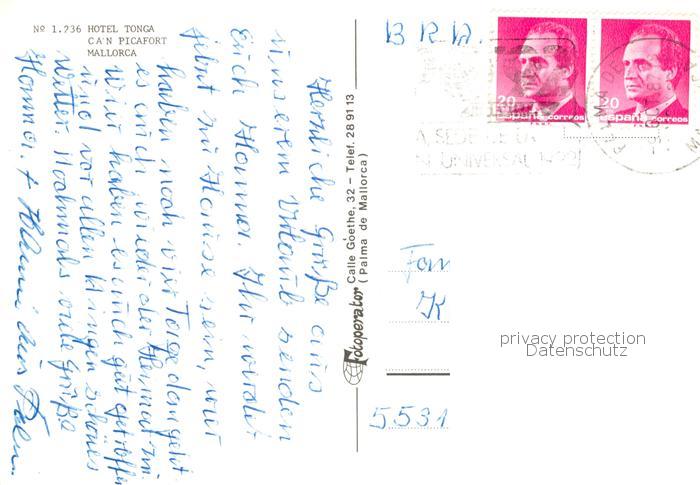 Nº 1.236 HOTEL TONGA
CA'N PICAFORT
MALLORCA
Herzliche Grüße aus
unserem Urlaub senden
Euch Hanna. Ihr werdet
jetzt zu Hause sein, wir
haben noch vier Tage dann geht
es auch wieder der Heimat zu.
Wir haben es auch gut getroffen
und vor allen Dingen schönes
Wetter. Nochmals viele Grüße
Fotoperator Calle Goethe, 32 - Telef. 28 91 13
(Palma de Mallorca)
B R D.
20
españa correos
20
españa correos
A SEDE DE LA
UNIVERSAL 1992
PALMA DE
Fam
K
5531
privacy protection
Datenschutz